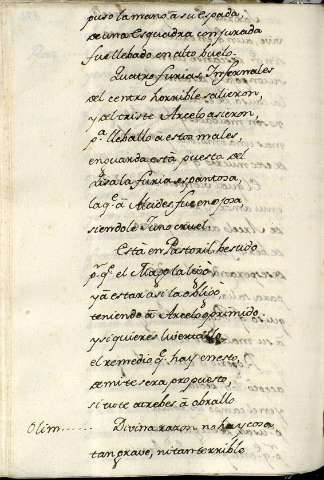 puso la mano a su espada
de una Esquadra conjurada
fue llebado en alto buelo.
Quatro furias Infernales
del centro horrible salieron,
y al triste Arcelo asieron,
pª lleballo a estos males,
en guarda està puesta del
la furia espantosa
la q̃ à Alcides fue enojosa
siendole Juno cruel.
Està en Pastoril bestido
pr q̃ el Mago la
y à estar asi la obligò,
teniendo à Arcelo oprimido,
y si quieres
el remedio q̃ hay en esto,
de mi te sera propuesto,
si tu te atrebes à obrallo
Olim...... Divina razon no hay cosa
tan grave, ni tan terrible